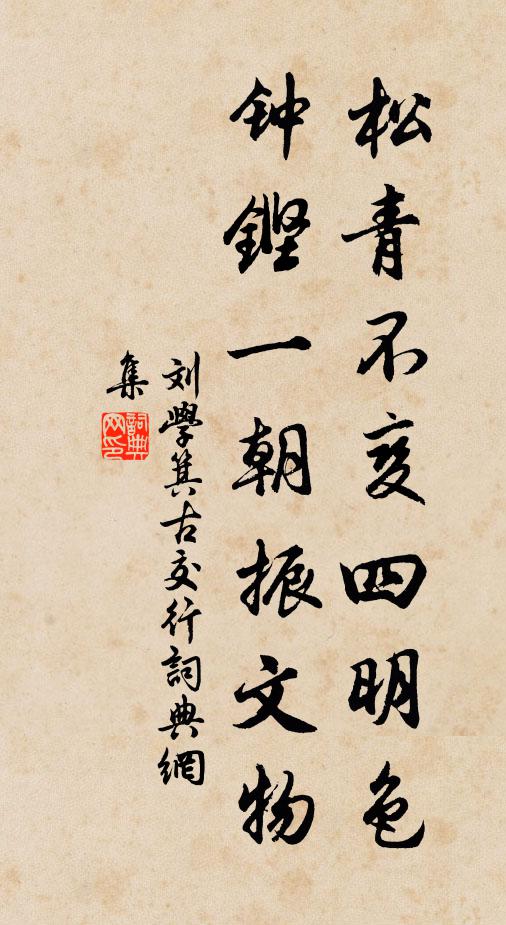 松青不变四明色
钟鏗一朝振文物
刘學箕古交行詞典網
集
詞典
网印